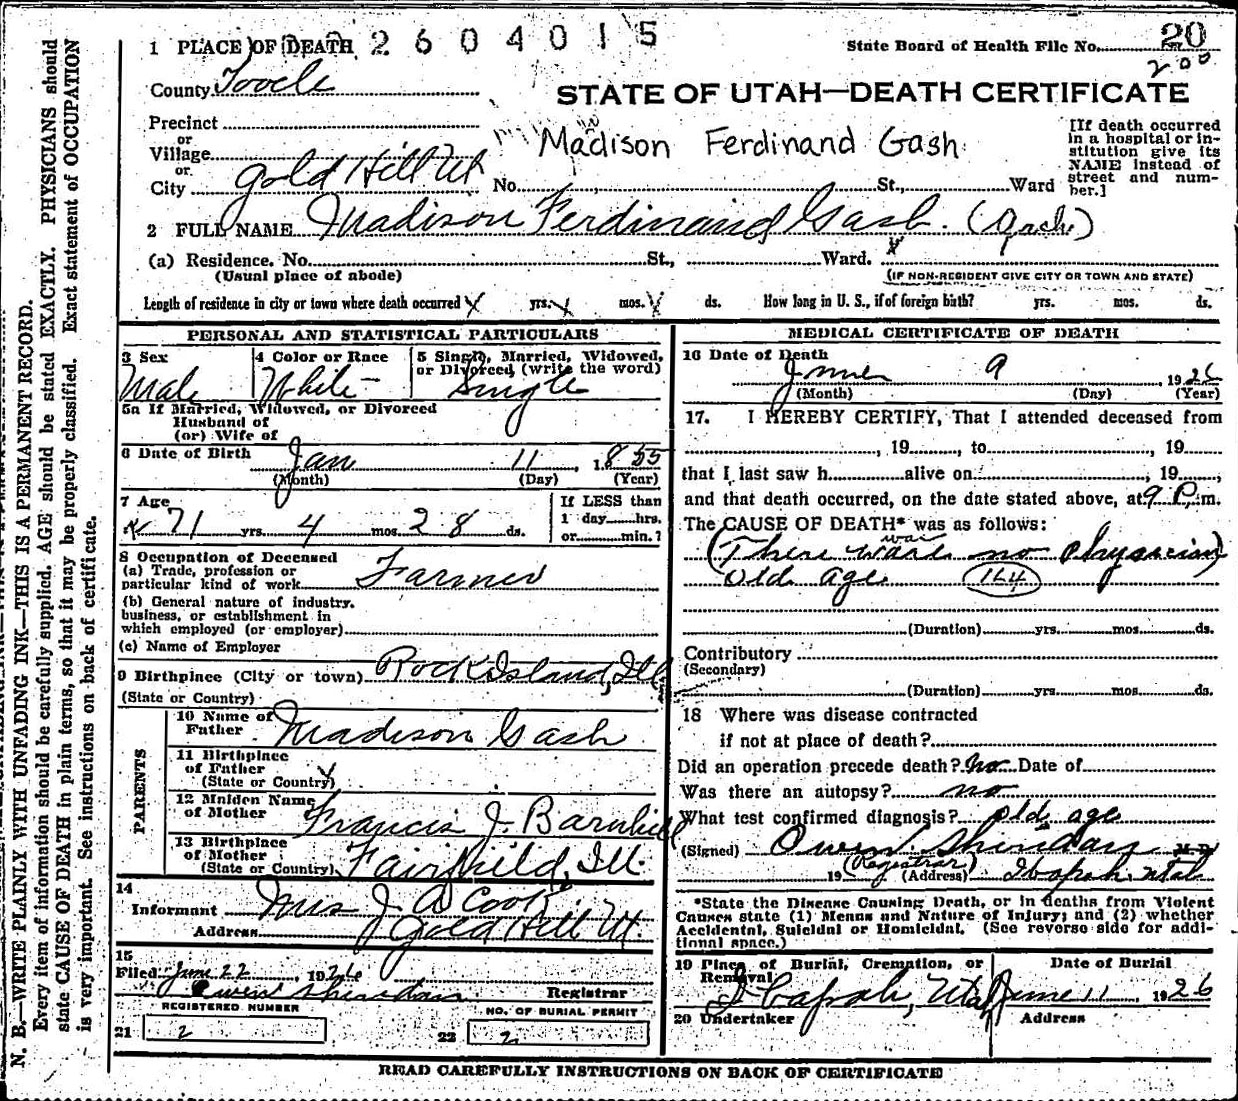 1 PLACE OF DEATH 2604015 State Board of Health File No. 20
200
County Tooele
STATE OF UTAH—DEATH CERTIFICATE
Precinct
or
Village
or
City Gold Hill Ut No. , St., Ward
Madison Ferdinand Gash
[If death occurred
in a hospital or in-
stitution give its
NAME instead of
street and num-
ber.]
2 FULL NAME Madison Ferdinand Gash. (Gash)
(a) Residence. No. St., Ward.
(Usual place of abode) (IF NON-RESIDENT GIVE CITY OR TOWN AND STATE)
Length of residence in city or town where death occurred yrs. mos. ds. How long in U. S., if of foreign birth? yrs. mos. ds.
PERSONAL AND STATISTICAL PARTICULARS
3 Sex 4 Color or Race 5 Single, Married, Widowed,
or Divorced (write the word)
Male White Single
5a If Married, Widowed, or Divorced
Husband of
(or) Wife of
6 Date of Birth Jan 11, 1855
(Month) (Day) (Year)
7 Age If LESS than
71 yrs. 4 mos. 28 ds. 1 day hrs.
or min.?
8 Occupation of Deceased
(a) Trade, profession or
particular kind of work Farmer
(b) General nature of industry.
business, or establishment in
which employed (or employer)
(c) Name of Employer
9 Birthplace (City or town) Rock Island, Ill
(State or Country)
PARENTS
10 Name of
Father Madison Gash
11 Birthplace
of Father
(State or Country)
12 Maiden Name
of Mother Francis J. Barnhill
13 Birthplace
of Mother
(State or Country) Fairfield, Ill.
14
Informant Mrs J. A Cook
Address Gold Hill Ut.
15
Filed June 22, 1926
Owen Sheridan Registrar
REGISTERED NUMBER NO. OF BURIAL PERMIT
21 2 22 2
MEDICAL CERTIFICATE OF DEATH
16 Date of Death
June 9, 1926
(Month) (Day) (Year)
17. I HEREBY CERTIFY, That I attended deceased from
, 19 , to , 19
that I last saw h alive on , 19 ,
and that death occurred, on the date stated above, at 9 P.m.
The CAUSE OF DEATH* was as follows:
was
(There ware no physician)
old age 164
(Duration) yrs. mos. ds.
Contributory
(Secondary)
(Duration) yrs. mos. ds.
18 Where was disease contracted
if not at place of death?
Did an operation precede death? No Date of
Was there an autopsy? no
What test confirmed diagnosis? old age
(Signed) Owen Sheridan M. D.
(Registrar)
19 (Address) Ibapah, Utah
*State the Disease Causing Death, or in deaths from Violent
Causes state (1) Means and Nature of Injury; and (2) whether
Accidental, Suicidal or Homicidal. (See reverse side for addi-
tional space.)
19 Place of Burial, Cremation, or Date of Burial
Removal
Ibapah, Utah June 11, 1926
20 Undertaker Address
READ CAREFULLY INSTRUCTIONS ON BACK OF CERTIFICATE
N. B.—WRITE PLAINLY WITH UNFADING INK—THIS IS A PERMANENT RECORD.
Every item of information should be carefully supplied. AGE should be stated EXACTLY. PHYSICIANS should
state CAUSE OF DEATH in plain terms, so that it may be properly classified. Exact statement of OCCUPATION
is very important. See instructions on back of certificate.